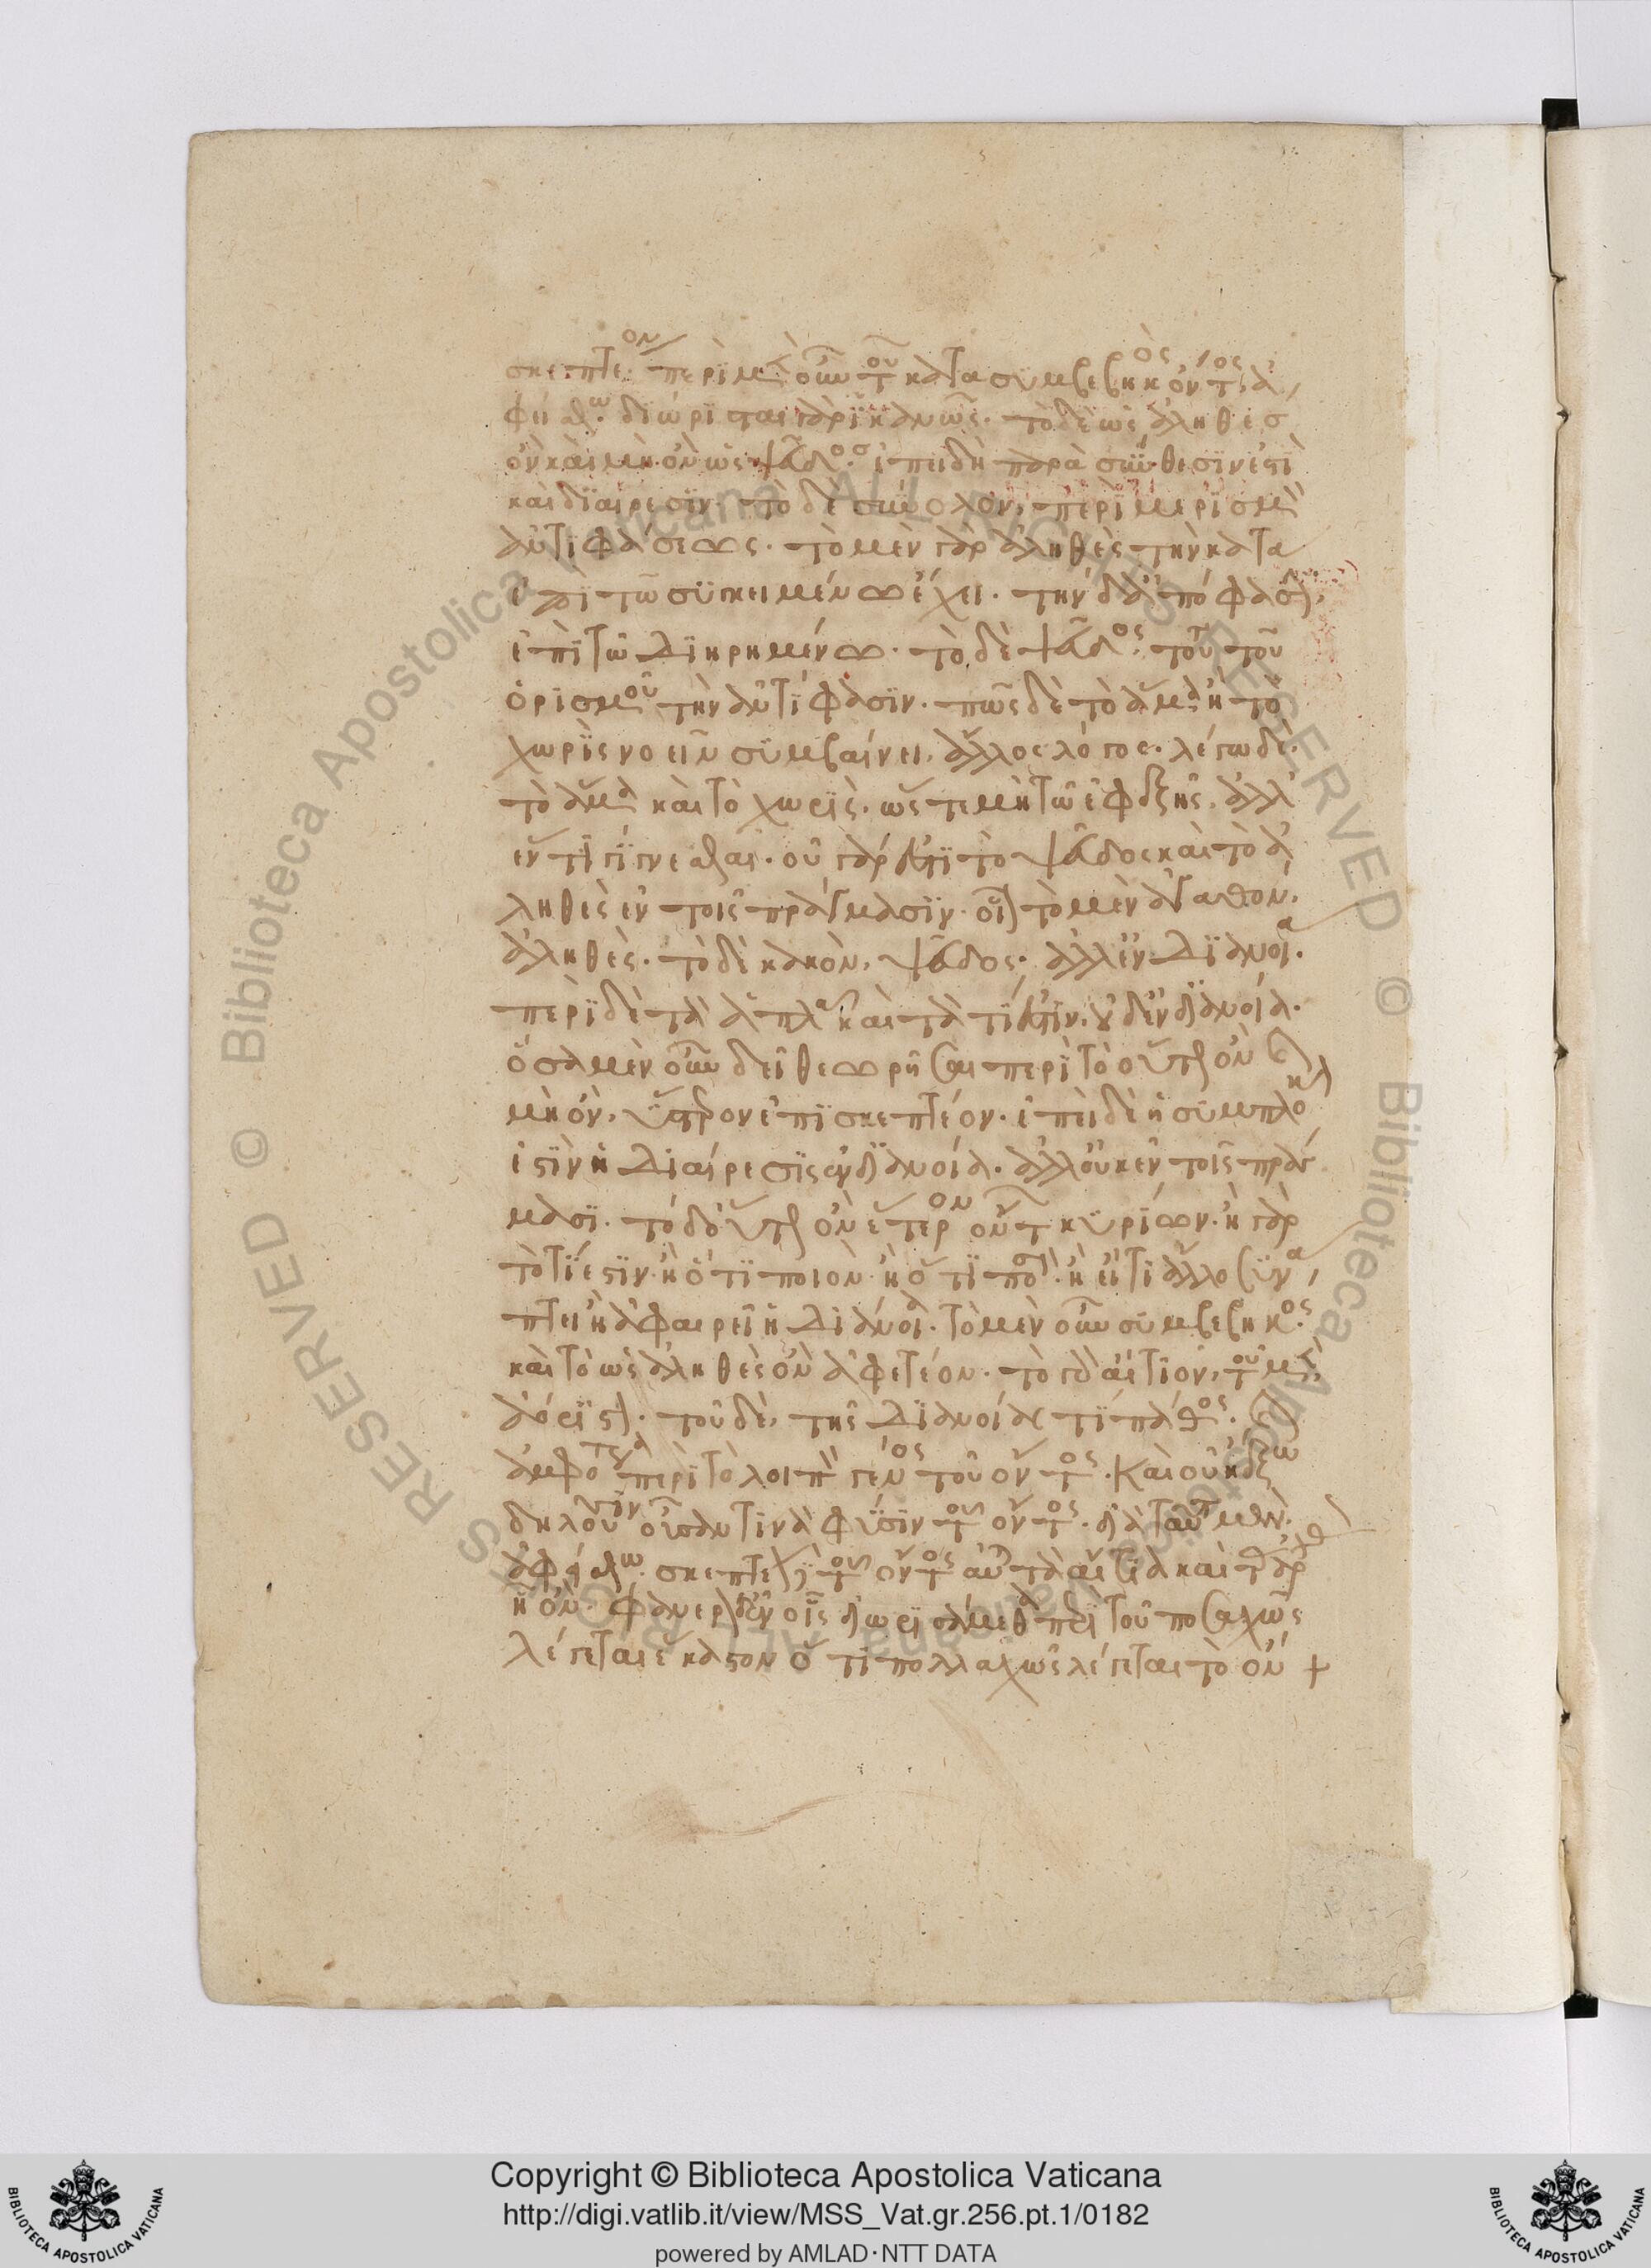 σκεπτέον. περὶ μὲν οὖν τοῦ κατὰ συμβεβηκὸς ὄντος, ἀ
φείσθω. διώρισται γὰρ ἱκανῶς. τὸ δὲ ὡς ἀληθὲς
ὂν καὶ μὴ ὂν ὡς ψεῦδος. ἐπειδὴ παρὰ σύνθεσίν ἐστι
καὶ διαίρεσιν. τὸ δὲ σύνολον, περὶ μερισμὸν
ἀντιφάσεως. τὸ μὲν γὰρ ἀληθὲς τὴν κατά
ἐπὶ τῶ συγκειμένω ἔχει. τὴν δ' ἀπόφασιν,
ἐπὶ τῶ διηρημένω. τὸ δὲ ψεῦδος τούτου τοῦ
ὁρισμοῦ τὴν ἀντίφασιν. πῶς δὲ τὸ ἅμα ἢ τὸ
χωρὶς νοεῖν συμβαίνει, ἄλλος λόγος. λέγω δὲ
τὸ ἅμα καὶ τὸ χωρὶς. ὥστε μὴ τῶ ἐφεξῆς. ἀλλ'
ἕν τι γίγνεσθαι. οὐ γάρ ἐστι τὸ ψεῦδος καὶ τὸ ἀ
ληθὲς ἐν τοῖς πράγμασιν. οἷον τὸ μὲν ἀγαθὸν,
ἀληθὲς. τὸ δὲ κακὸν, ψεῦδος. ἀλλ' ἐν διανοία.
περὶ δὲ τὰ ἁπλᾶ καὶ τὰ τί ἐστιν, οὐδ' ἐν διανοία.
ὅσα μὲν οὖν δεῖ θεωρῆσαι περὶ τὸ οὕτως ὂν καὶ
μὴ ὂν, ὕστερον ἐπισκεπτέον. ἐπεὶ δὲ ἡ συμπλοκή
ἐστιν ἡ διαίρεσις ἐν διανοία. ἀλλ' οὐκ ἐν τοῖς πράγ
μασι. τὸ δ' οὕτως ὂν ἕτερον ὂν τῶν κυρίων. ἢ γὰρ
τὸ τί ἐστιν ἢ ὅτι ποιὸν ἢ ὅτι ποσὸν ἢ εἴ τι ἄλλο συνά
πτει ἢ ἀφαιρεῖ ἡ διάνοια. τὸ μὲν οὖν συμβεβηκὸς
καὶ τὸ ὡς ἀληθὲς ὂν ἀφετέον. τὸ γὰρ αἴτιον, τοῦ μὲν,
ἀόριστον. τοῦ δὲ, τῆς διανοίας τι πάθος. καὶ
ἀμφότερα περὶ τὸ λοιπὸν γένος τοῦ ὄντος. καὶ οὐκ ἔξω
δηλοῦσιν οὖσάν τινα φύσιν τοῦ ὄντος. διὰ ταῦτα μὲν
ἀφείσθω. σκεπτέον δὲ τοῦ ὄντος αὐτοῦ τὰ αἴτια καὶ τὰς ἀρχὰς
ἧ ὂν. φανερὸν δ' ἐν οἷς διωρισάμεθα περὶ τοῦ ποσαχῶς
λέγεται ἕκαστον ὅτι πολλαχῶς λέγεται τὸ ὂν +
Copyright © Biblioteca Apostolica Vaticana
http://digi.vatlib.it/view/MSS_Vat.gr.256.pt.1/0182
powered by AMLAD·NTT DATA